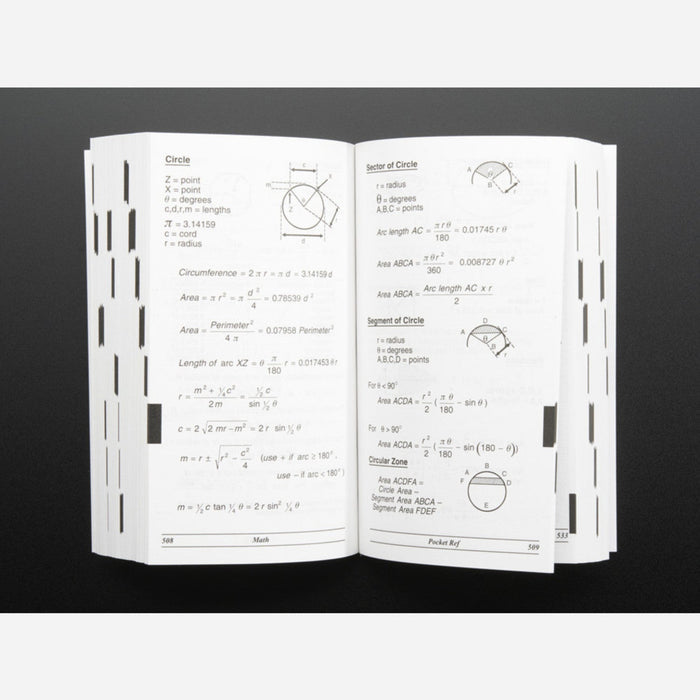 Circle
Z = point
X = point
θ = degrees
c,d,r,m = lengths
π = 3.14159
c = cord
r = radius
c
m
X
Z
θ
r
d
Circumference = 2 π r = π d = 3.14159 d
Area = π r² = π d²/4 = 0.78539 d²
Area = Perimeter²/4 π = 0.07958 Perimeter²
Length of arc XZ = θ π/180 r = 0.017453 θ r
r = m² + ¼ c²/2m = ½ c/sin ½ θ
c = 2 √2 mr – m² = 2 r sin ½ θ
m = r ± √r² – c²/4 (use + if arc ≥ 180°,
use – if arc < 180°)
m = ½ c tan ¼ θ = 2 r sin² ¼ θ
508 Math
Sector of Circle
r = radius
θ = degrees
A,B,C = points
A
C
B
r
Arc length AC = π r θ/180 = 0.01745 r θ
Area ABCA = π θ r²/360 = 0.008727 θ r²
Area ABCA = Arc length AC x r/2
Segment of Circle
r = radius
θ = degrees
A,B,C,D = points
D
A
C
θ
B
r
For θ < 90°
Area ACDA = r²/2 ( π θ/180 – sin θ )
For θ > 90°
Area ACDA = r²/2 ( π θ/180 – sin (180 – θ))
Circular Zone
Area ACDFA =
Circle Area –
Segment Area ABCA –
Segment Area FDEF
B
A
C
F
D
E
Pocket Ref 509
533